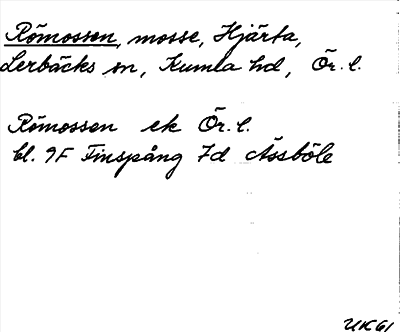 Römossen, mosse, Hjärta,
Lerbäcks sn, Kumla hd, Ör. l.
Römossen ek Ör. l.
bl. 9F Finspång 7d Åsböle
UK61